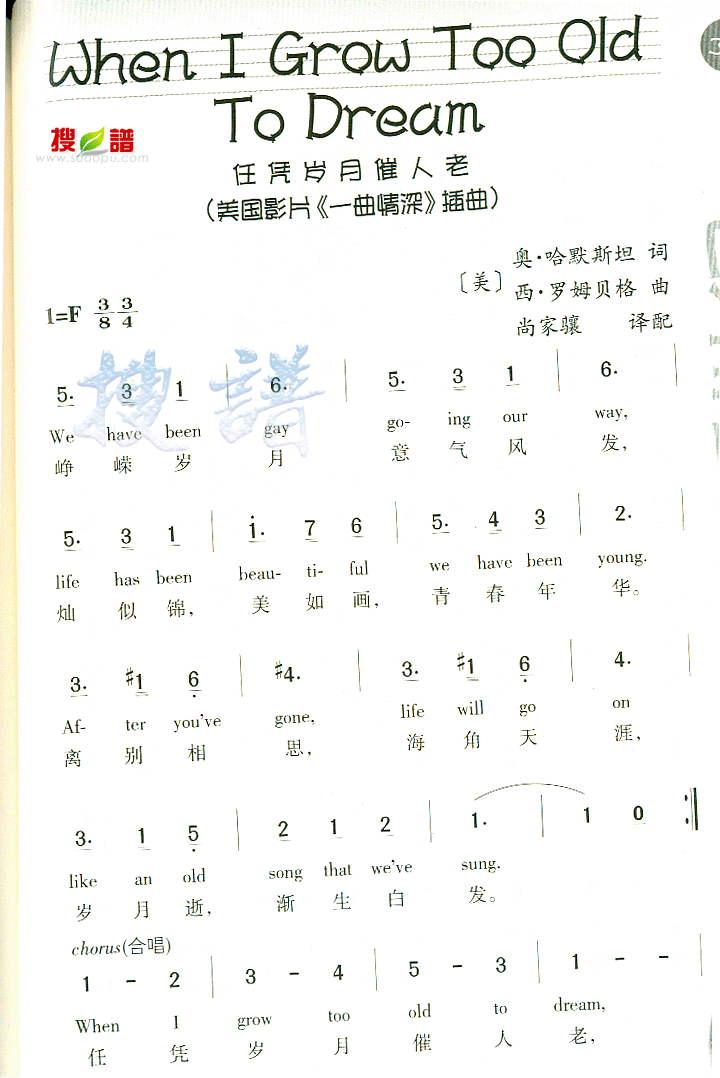 When I Grow Too Old
To Dream
搜谱
www.sooopu.com
任凭岁月催人老
（美国影片《一曲情深》插曲）
〔美〕奥·哈默斯坦 词
西·罗姆贝格 曲
尚家骧 译配
1=F 3/8 3/4
搜譜
5. 3 1 | 6. | 5. 3 1 | 6. |
We have been gay go- ing our way,
峥嵘岁月 意气风发，
5. 3 1 | i. 7 6 | 5. 4 3 | 2. |
life has been beau- ti- ful we have been young.
灿似锦， 美如画， 青春年华。
3. #1 6 | #4. | 3. #1 6 | 4. |
Af- ter you've gone, life will go on
离别相思， 海角天涯，
3. 1 5 | 2 1 2 | 1. | 1 0 :‖
like an old song that we've sung.
岁月逝， 渐生白发。
chorus(合唱)
1 - 2 | 3 - 4 | 5 - 3 | 1 - - |
When I grow too old to dream,
任凭岁月催人老，